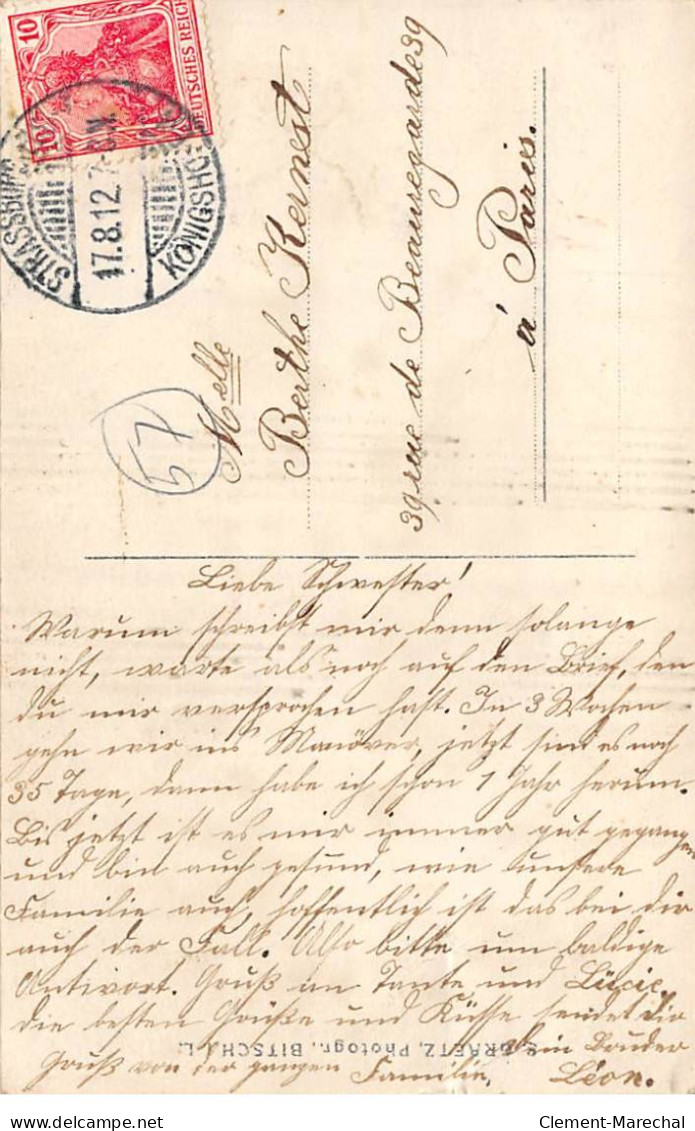 10
10
DEUTSCHES REICH
STRASSBURG
KÖNIGSHO
17.8.12.7-8N
57
Melle
Berthe Kernest
39 rue de Beauregarde 39
à Paris.
Liebe Schwester!
Warum schreibst mir denn solange
nicht, warte als noch auf den Brief, den
du mir versprochen hast. In 3 Wochen
gehn wir ins Manöver, jetzt sind es noch
35 Tage, dann habe ich schon 1 Jahr herum.
Bis jetzt ist es mir immer gut gegangen
und bin auch gesund, wie unsere
Familie auch, hoffentlich ist das bei dir
auch der Fall. Also bitte um baldige
Antwort. Gruß an Tante und Lücie.
die besten Grüße und Küsse sendet dir
dein Bruder
Gruß von der ganzen Familie, Léon.
GRAETZ, Photogr., BITSCH i.L.
Clement-Marechal